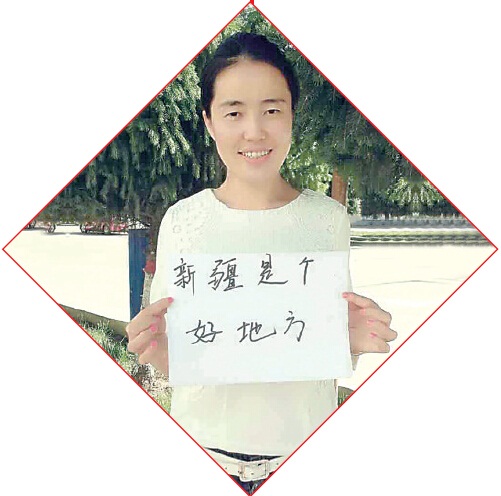 新疆是个
好地方